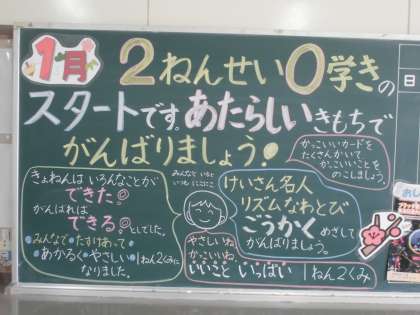 1月
2ねんせい0学きの
スタートです。あたらしいきもちで
がんばりましょう!
かっこいいカードを
たくさんかいて
かっこいいことを
のこしましょう。
きょねんは いろんなことが
できた
がんばれば
できるとしてた。
みんなで たすけあって
あかるく やさしい 1ねん2くみに
なりました。
みんなで いると
いつも にこにこ
けいさん名人
リズムなわとび
ごうかく めざして
がんばりましょう。
やさしいね
かっこいいね
いいこと いっぱい 1ねん2くみ
日